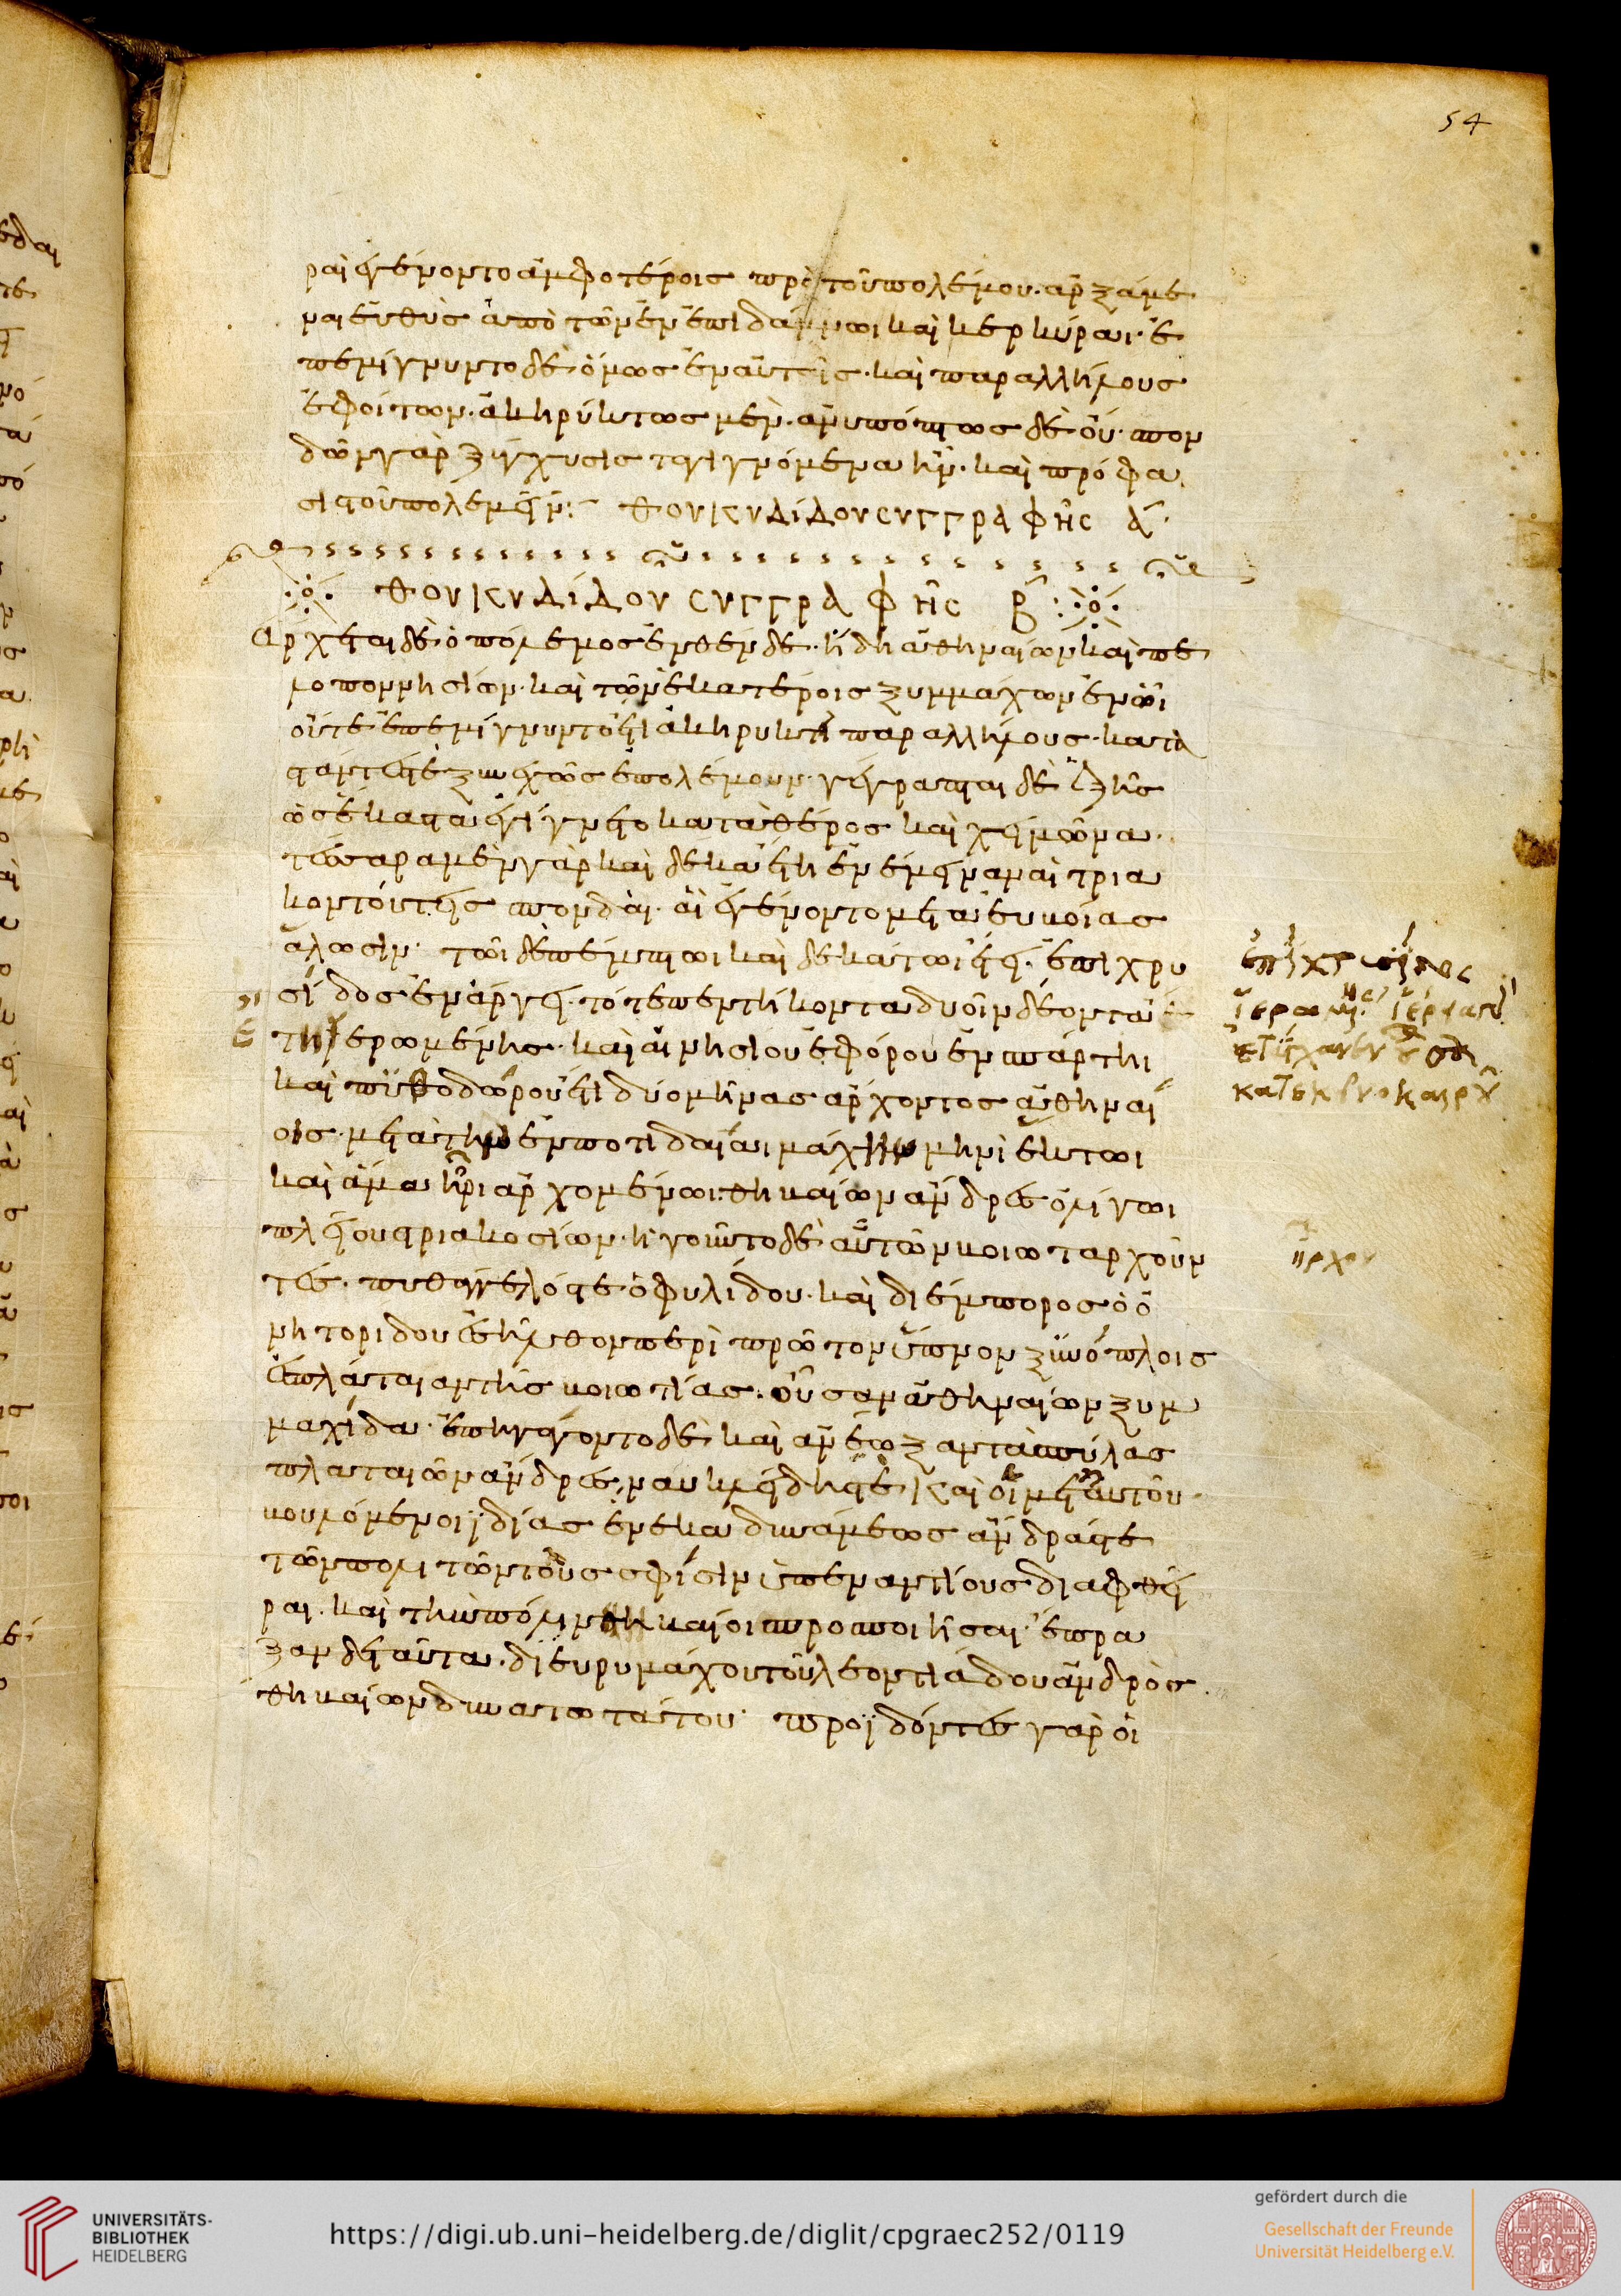 54
ραι ἐγένοντο ἀμφοτέροις πρὸ τοῦ πολέμου· ἀρξάμε
ναι εὐθὺς ἀπὸ τῶν ἐν ἐπιδάμνωι καὶ κερκύραι· ἐ
πεμίγνυντο δὲ ὅμως ἐν αὐταῖς· καὶ παραλλήλους
ἐφοίτων· ἀκηρύκτως μὲν· ἀνυπόπτως δὲ οὔ· σπον
δῶν γὰρ ξύγχυσις τὰ γιγνόμενα ἦν· καὶ πρόφα
σις τοῦ πολεμεῖν:
θουκυδίδου συγγραφῆς α
θουκυδίδου συγγραφῆς β
Ἄρχεται δὲ ὁ πόλεμος ἐνθένδε· ἤδη ἀθηναίων καὶ πε
λοποννησίων· καὶ τῶν ἑκατέροις ξυμμάχων ἐν ὧι
οὔτε ἐπεμίγνυντο ἔτι ἀκηρυκτὶ παραλλήλους· κατα
στάντες τε ξυνεχῶς ἐπολέμουν· γέγραπται δὲ ἑξῆς
ὡς ἕκαστα ἐγίγνετο κατὰ θέρος καὶ χειμῶνα·
τέσσαρα μὲν γὰρ καὶ δέκα ἔτη ἐνέμειναν αἱ τρια
κοντούτεις σπονδαὶ· αἳ ἐγένοντο μετ' εὐβοίας
ἅλωσιν· τῶι δὲ πέμπτωι καὶ δεκάτωι ἔτει· ἐπὶ χρυ
σίδος ἐν ἄργει· τότε πεντήκοντα δυοῖν δέοντα ἔ
τη ἱερωμένης· καὶ αἰνησίου ἐφόρου ἐν σπάρτηι
καὶ πυθοδώρου ἔτι δύο μῆνας ἄρχοντος ἀθηναί
οις· μετὰ τὴν ἐν ποτιδαίαι μάχην μηνὶ ἕκτωι
καὶ ἅμα ἦρι ἀρχομένωι· θηβαίων ἄνδρες ὀλίγωι
πλείους τριακοσίων· ἡγοῦντο δὲ αὐτῶν βοιωταρχοῦν
τες· πυθάγγελός τε ὁ φυλίδου· καὶ διέμπορος ὁ ὀ
νητορίδου ἐσῆλθον περὶ πρῶτον ὕπνον ξὺν ὅπλοις
ἐς πλάταιαν τῆς βοιωτίας· οὖσαν ἀθηναίων ξυμ
μαχίδα· ἐπηγάγοντο δὲ καὶ ἀνέωιξαν τὰς πύλας
πλαταιῶν ἄνδρες, ναυκλείδης τε καὶ οἱ μετ' αὐτοῦ·
βουλόμενοι ἰδίας ἕνεκα δυνάμεως ἄνδρας τε
τῶν πολιτῶν τοὺς σφίσιν ὑπεναντίους διαφθεῖ
ραι· καὶ τὴν πόλιν θηβαίοις προσποιῆσαι· ἔπρα
ξαν δὲ ταῦτα· δι' εὐρυμάχου τοῦ λεοντιάδου ἀνδρὸς
θηβαίων δυνατωτάτου· προϊδόντες γὰρ οἱ
ἦρχον
UNIVERSITÄTS-
BIBLIOTHEK
HEIDELBERG
https://digi.ub.uni-heidelberg.de/diglit/cpgraec252/0119
gefördert durch die
Gesellschaft der Freunde
Universität Heidelberg e.V.